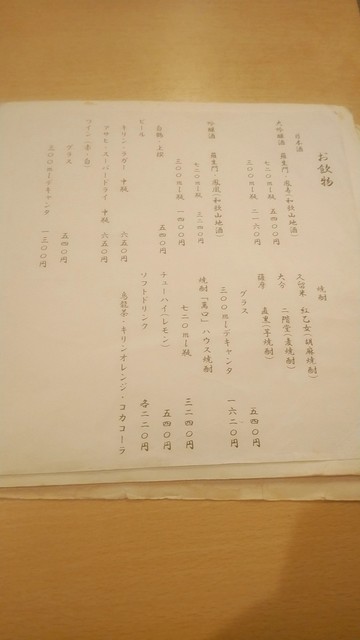 お飲物
日本酒
大吟醸酒 羅生門・鳳寿(和歌山地酒)
七二〇ml瓶 五四〇〇円
三〇〇ml瓶 二一六〇円
吟醸酒 羅生門・鳳凰(和歌山地酒)
七二〇ml瓶 三二四〇円
三〇〇ml瓶 一四〇〇円
白鶴・上撰 五四〇円
ビール
キリン・ラガー 中瓶 六五〇円
アサヒ・スーパードライ 中瓶 六五〇円
ワイン(赤・白)
グラス 五四〇円
三〇〇mlデキャンタ 一三〇〇円
焼酎
久留米 紅乙女(胡麻焼酎)
大分 二階堂(麦焼酎)
薩摩 (芋焼酎)
グラス 五四〇円
三〇〇mlデキャンタ 一六二〇円
焼酎 ハウス焼酎
七二〇ml瓶 三二四〇円
チューハイ(レモン) 五四〇円
ソフトドリンク 各二二〇円
烏龍茶・キリンオレンジ・コカコーラ